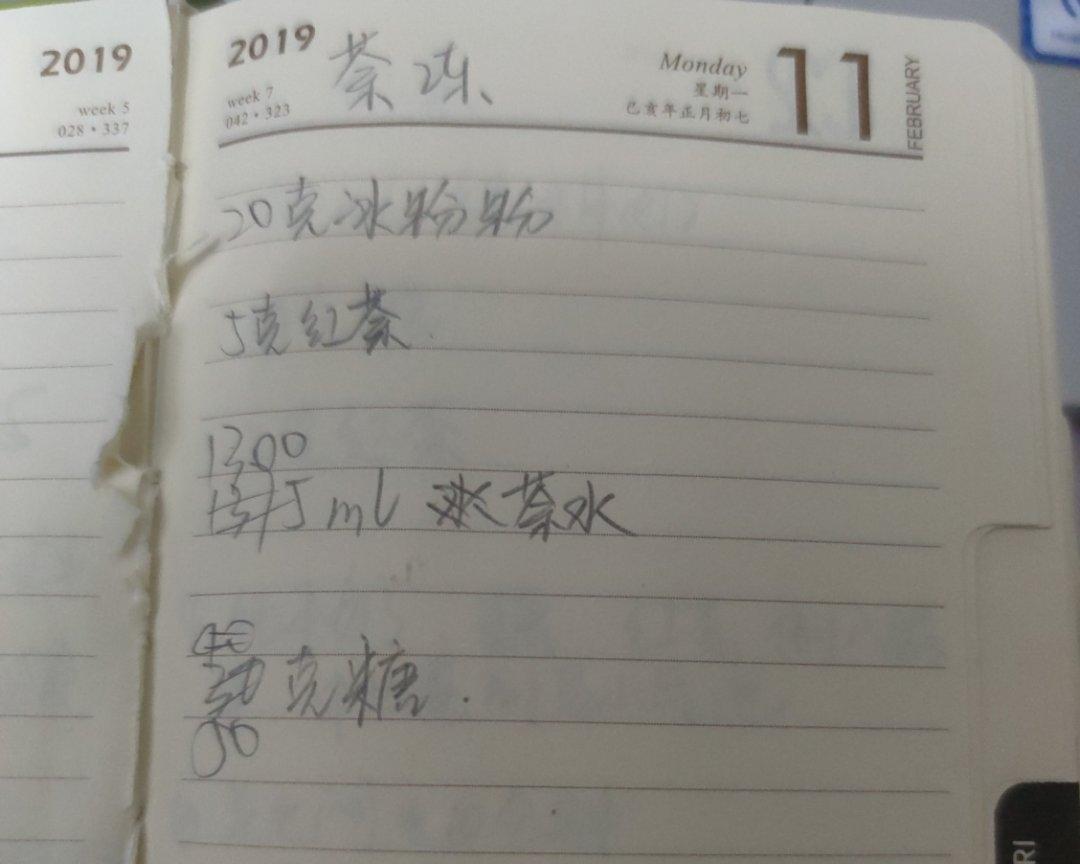 2019
week 5
028·337
2019
week 7
042·323
茶冻
Monday
星期一
己亥年正月初七
11
FEBRUARY
20克冰粉粉
5克红茶.
1300
ml 茶水
克糖.
50
RI